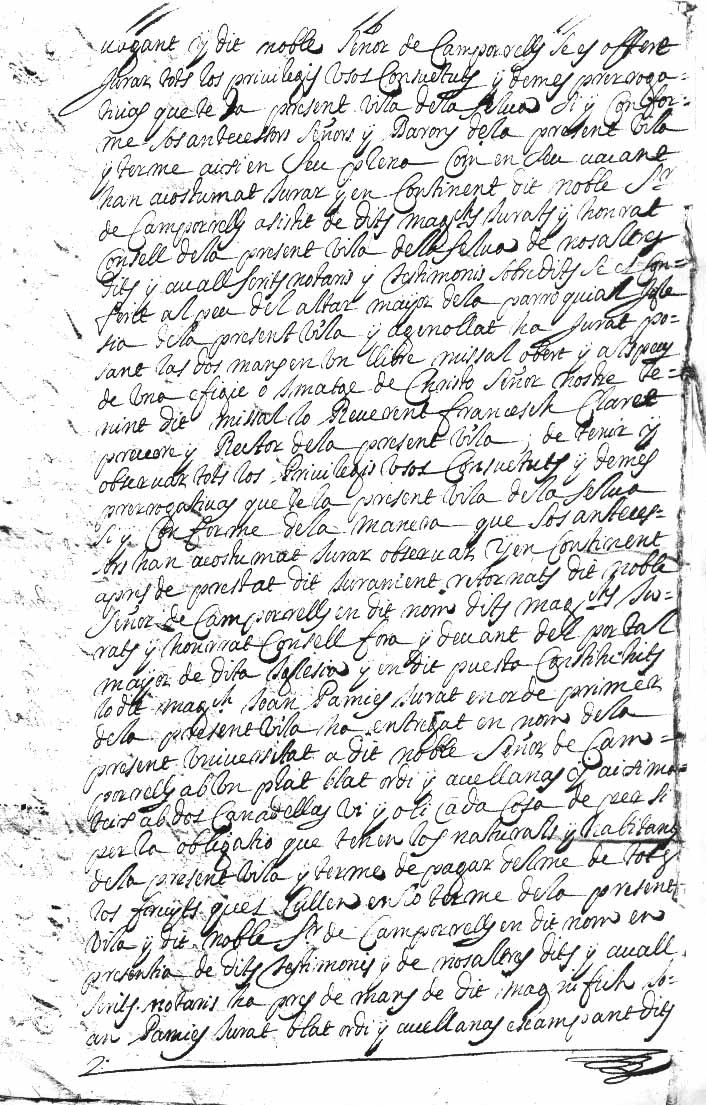 vagant y dit noble Señor de Camporrells se es offert
Jurar tots los privilegis Usos Consuetuts y demes prerroga=
tivas que te la present vila dela Selva Si y Confor=
me Sos antecessors Señors y Barons dela present vila
y terme aixi en Seu plena Com en Seu vacant
han acostumat Jurar y en Continent dit noble Sr
de Camporrells asistit de dits magchs Jurats y honrat
Consell dela present vila dela Selva de nosaltres
dits y avall Scrits notaris y testimonis Sobredits Se es Con=
ferit al peu del altar major dela parroquial Igle
sia dela present vila y agenollat ha Jurat po=
sant las dos mans en Un llibre missal obert y als peus
de Una efigie o Imatge de Christo Señor nostre te=
nint dit missal lo Reverent Francesch Claret
prevere y Rector dela present vila, de tenir y
observar tots los Privilegis Usos Consuetuts y demes
prerrogativas que te la present vila dela Selva
Si y Conforme dela manera que Sos anteces=
sors han acostumat Jurar observar y en Continent
apres de prestat dit Jurament retornats dit noble
Señor de Camporrells en dit nom dits magchs Ju=
rats y honrrat Consell fora y devant del portal
major de dita Iglesia y en dit puesto Constituhits
lo dit magch Joan Pamies Jurat en orde primer
dela present vila ha entregat en nom dela
present Universitat a dit noble Señor de Cam=
porrells ab Un plat blat ordi y avellanas y aixi ma=
teix ab dos Canadellas vi y oli cada Cosa de per si
per la obligatio que tenen los naturals y habitans
dela present vila y terme de pagar delme de tots
los fruyts ques Cullen en lo terme dela present
vila y dit noble Sr de Camporrells en dit nom en
presentia de dits testimonis y de nosaltres dits y avall
Scrits notaris ha pres de mans de dit magnifich Jo=
an Pamies Jurat blat ordi y avellanas escampant dits
2.